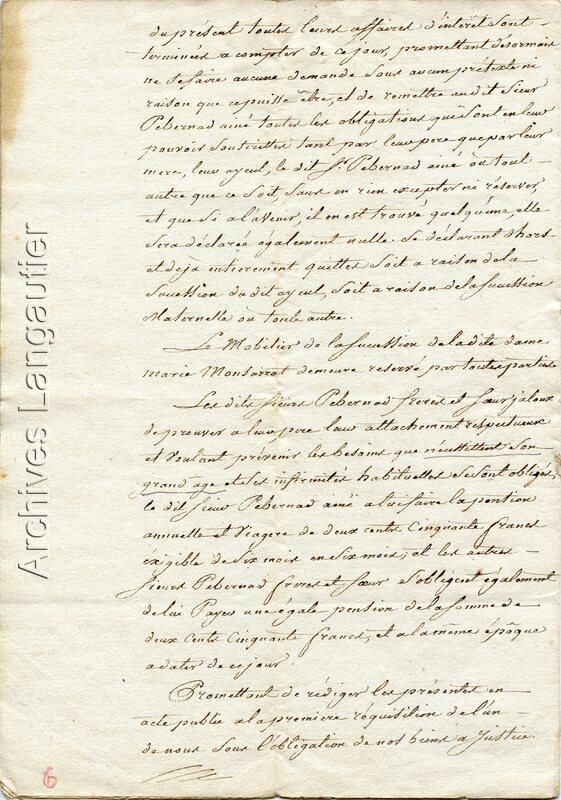 du présent toutes leurs affaires d'intérêt sont
terminées a compter de ce jour, promettant désormais
ne se faire aucune demande sous aucun prétexte ni
raison que ce puisse être, et de remettre au dit Sieur
Pebernad ainé toutes les obligations qui sont en leur
pouvoir souscrittes tant par leur pere que par leur
mere, leur ayeul, le dit Sr. Pebernad ainé où tout
autre que ce soit, sans en rien excepter ni réserver,
et que si a l'avenir, il en est trouvé quelqu'une, elle
sera déclarée également nulle. Se déclarant d'hors
et déja entierement quittes soit a raison de la
Sucession du dit ayeul, soit a raison de la sucession
Maternelle où toute autre.
Le Mobilier de la sucession de la dite dame
marie Monsarrat demeure reservé par toutes parties.
Les dits sieurs Pebernad freres et sœur jaloux
de prouver a leur pere leur attachement respectueux
et voulant prévenir les besoins que nécessittent son
grand age et ses infirmités habituelles se sont obligés,
le dit sieur Pebernad ainé a lui faire la pention
annuelle et viagere de deux cents Cinquante francs
exigible de six mois en six mois; et les autres
sieurs Pebernad freres et sœur s'obligent également
de lui Payer une égale pension de la somme de
deux cents Cinquante francs, et a la même époque
a dater de ce jour.
Promettant de rédiger les présentes en
acte public a la premiere réquisition de l'un
de nous sous l'obligation de nos biens a Justice.
6
Archives Langautier